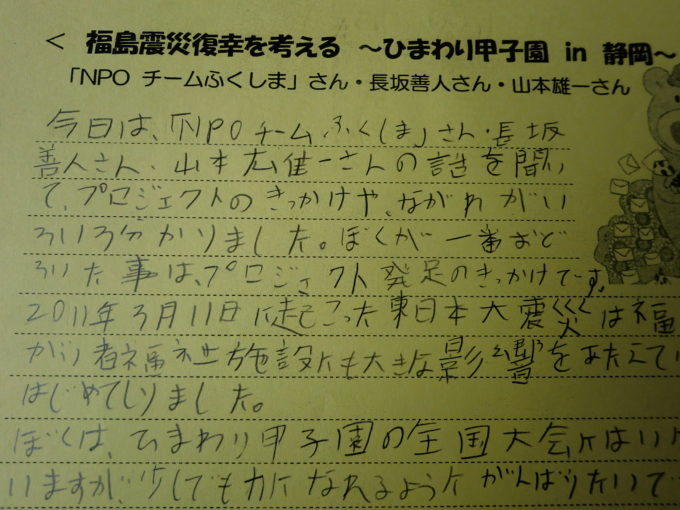 < 福島震災復幸を考える ～ひまわり甲子園 in 静岡～
「NPO チームふくしま」さん・長坂善人さん・山本雄一さん
今日は、「NPOチームふくしま」さん・長坂
善人さん、山本広雄一さんの話を聞い
て、プロジェクトのきっかけや、ながれがい
ろいろ分かりました。ぼくが一番おど
ろいた事は、プロジェクト発足のきっかけです。
2011年3月11日に起こった東日本大震災は福
がい者福祉施設にも大きな影響をあたえてい
はじめてしりました。
ぼくは、ひまわり甲子園の全国大会には
いますが、少しでも力になれるようにがんばりたいで